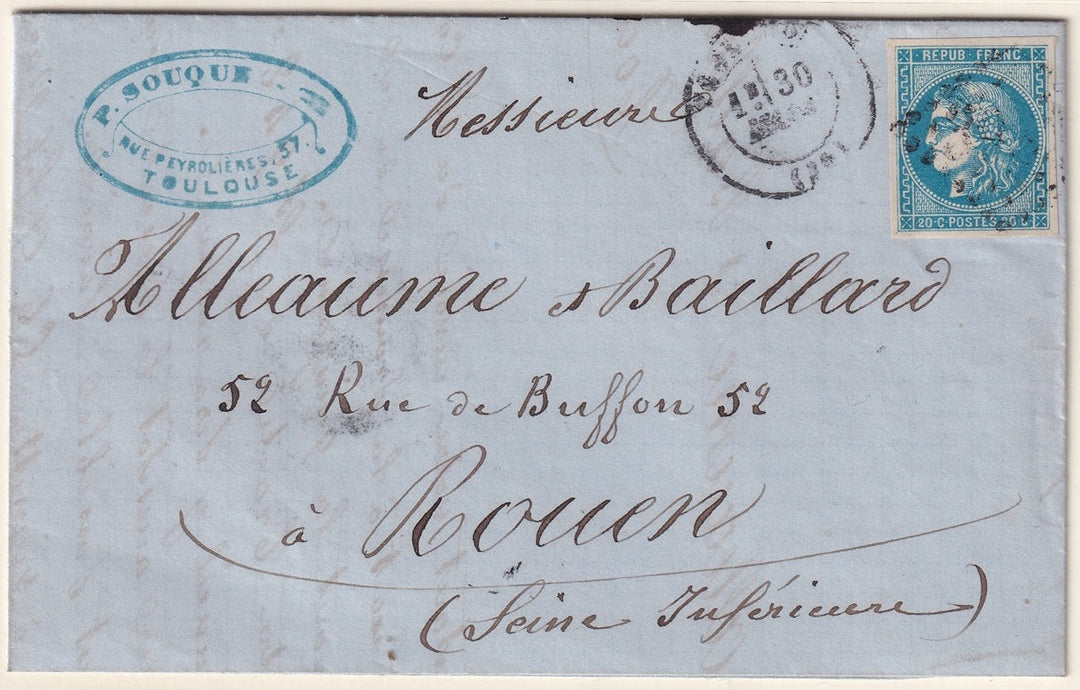 P. SOUQUE
RUE PEYROLIÈRES, 57
TOULOUSE
30
REPUB · FRANC
20 · C · POSTES 20 C
Messieurs
Alleaume & Baillard
52 Rue de Buffon 52
à Rouen
(Seine Inférieure)